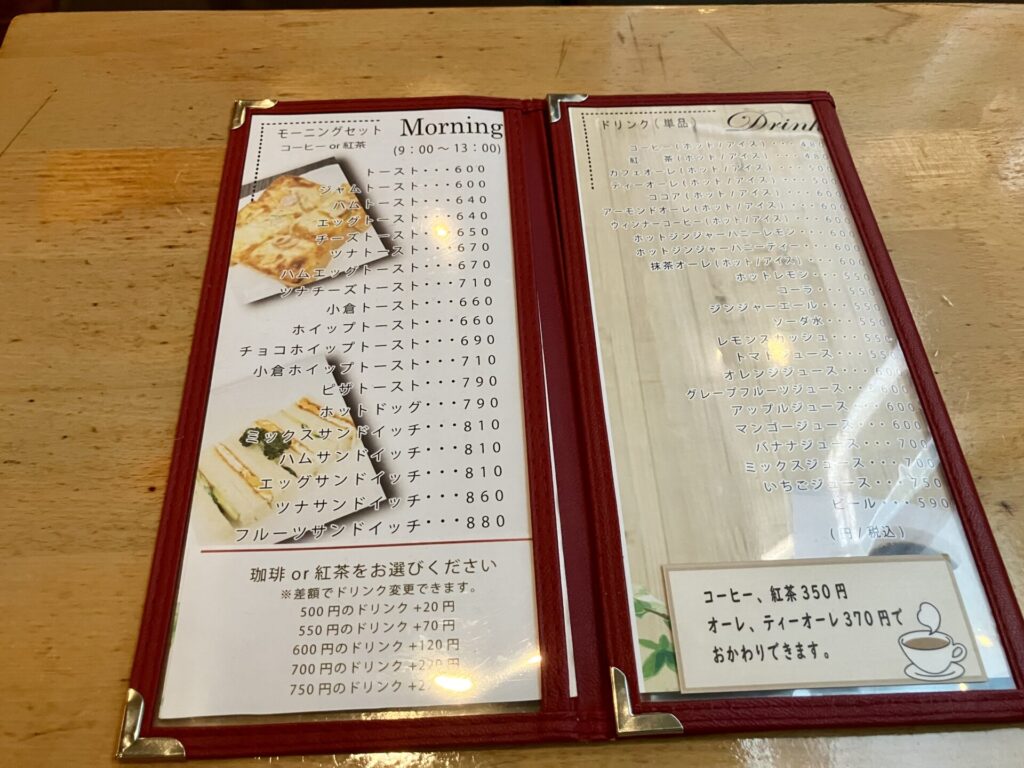 モーニングセット Morning
コーヒー or 紅茶 (9:00〜13:00)
トースト・・・600
ジャムトースト・・・600
ハムトースト・・・640
エッグトースト・・・640
チーズトースト・・・650
ツナトースト・・・670
ハムエッグトースト・・・670
ツナチーズトースト・・・710
小倉トースト・・・660
ホイップトースト・・・660
チョコホイップトースト・・・690
小倉ホイップトースト・・・710
ピザトースト・・・790
ホットドッグ・・・790
ミックスサンドイッチ・・・810
ハムサンドイッチ・・・810
エッグサンドイッチ・・・810
ツナサンドイッチ・・・860
フルーツサンドイッチ・・・880
珈琲 or 紅茶をお選びください
※差額でドリンク変更できます。
500円のドリンク +20円
550円のドリンク +70円
600円のドリンク +120円
700円のドリンク +220円
750円のドリンク
ドリンク(単品) Drink
コーヒー(ホット/アイス)・・・480
紅 茶(ホット/アイス)・・・480
カフェオーレ(ホット/アイス)・・・500
ティーオーレ(ホット/アイス)・・・
ココア(ホット/アイス)・・・600
アーモンドオーレ(ホット/アイス)・・・600
ウィンナーコーヒー(ホット/アイス)・・・600
ホットジンジャーハニーレモン・・・600
ホットジンジャーハニーティー・・・600
抹茶オーレ(ホット/アイス)・・・600
ホットレモン・・・550
コーラ・・・550
ジンジャーエール・・・550
ソーダ水・・・550
レモンスカッシュ・・・550
トマトジュース・・・550
オレンジジュース・・・600
グレープフルーツジュース・・・600
アップルジュース・・・600
マンゴージュース・・・600
バナナジュース・・・700
ミックスジュース・・・700
いちごジュース・・・750
ビール・・・590
(円/税込)
コーヒー、紅茶350円
オーレ、ティーオーレ370円で
おかわりできます。